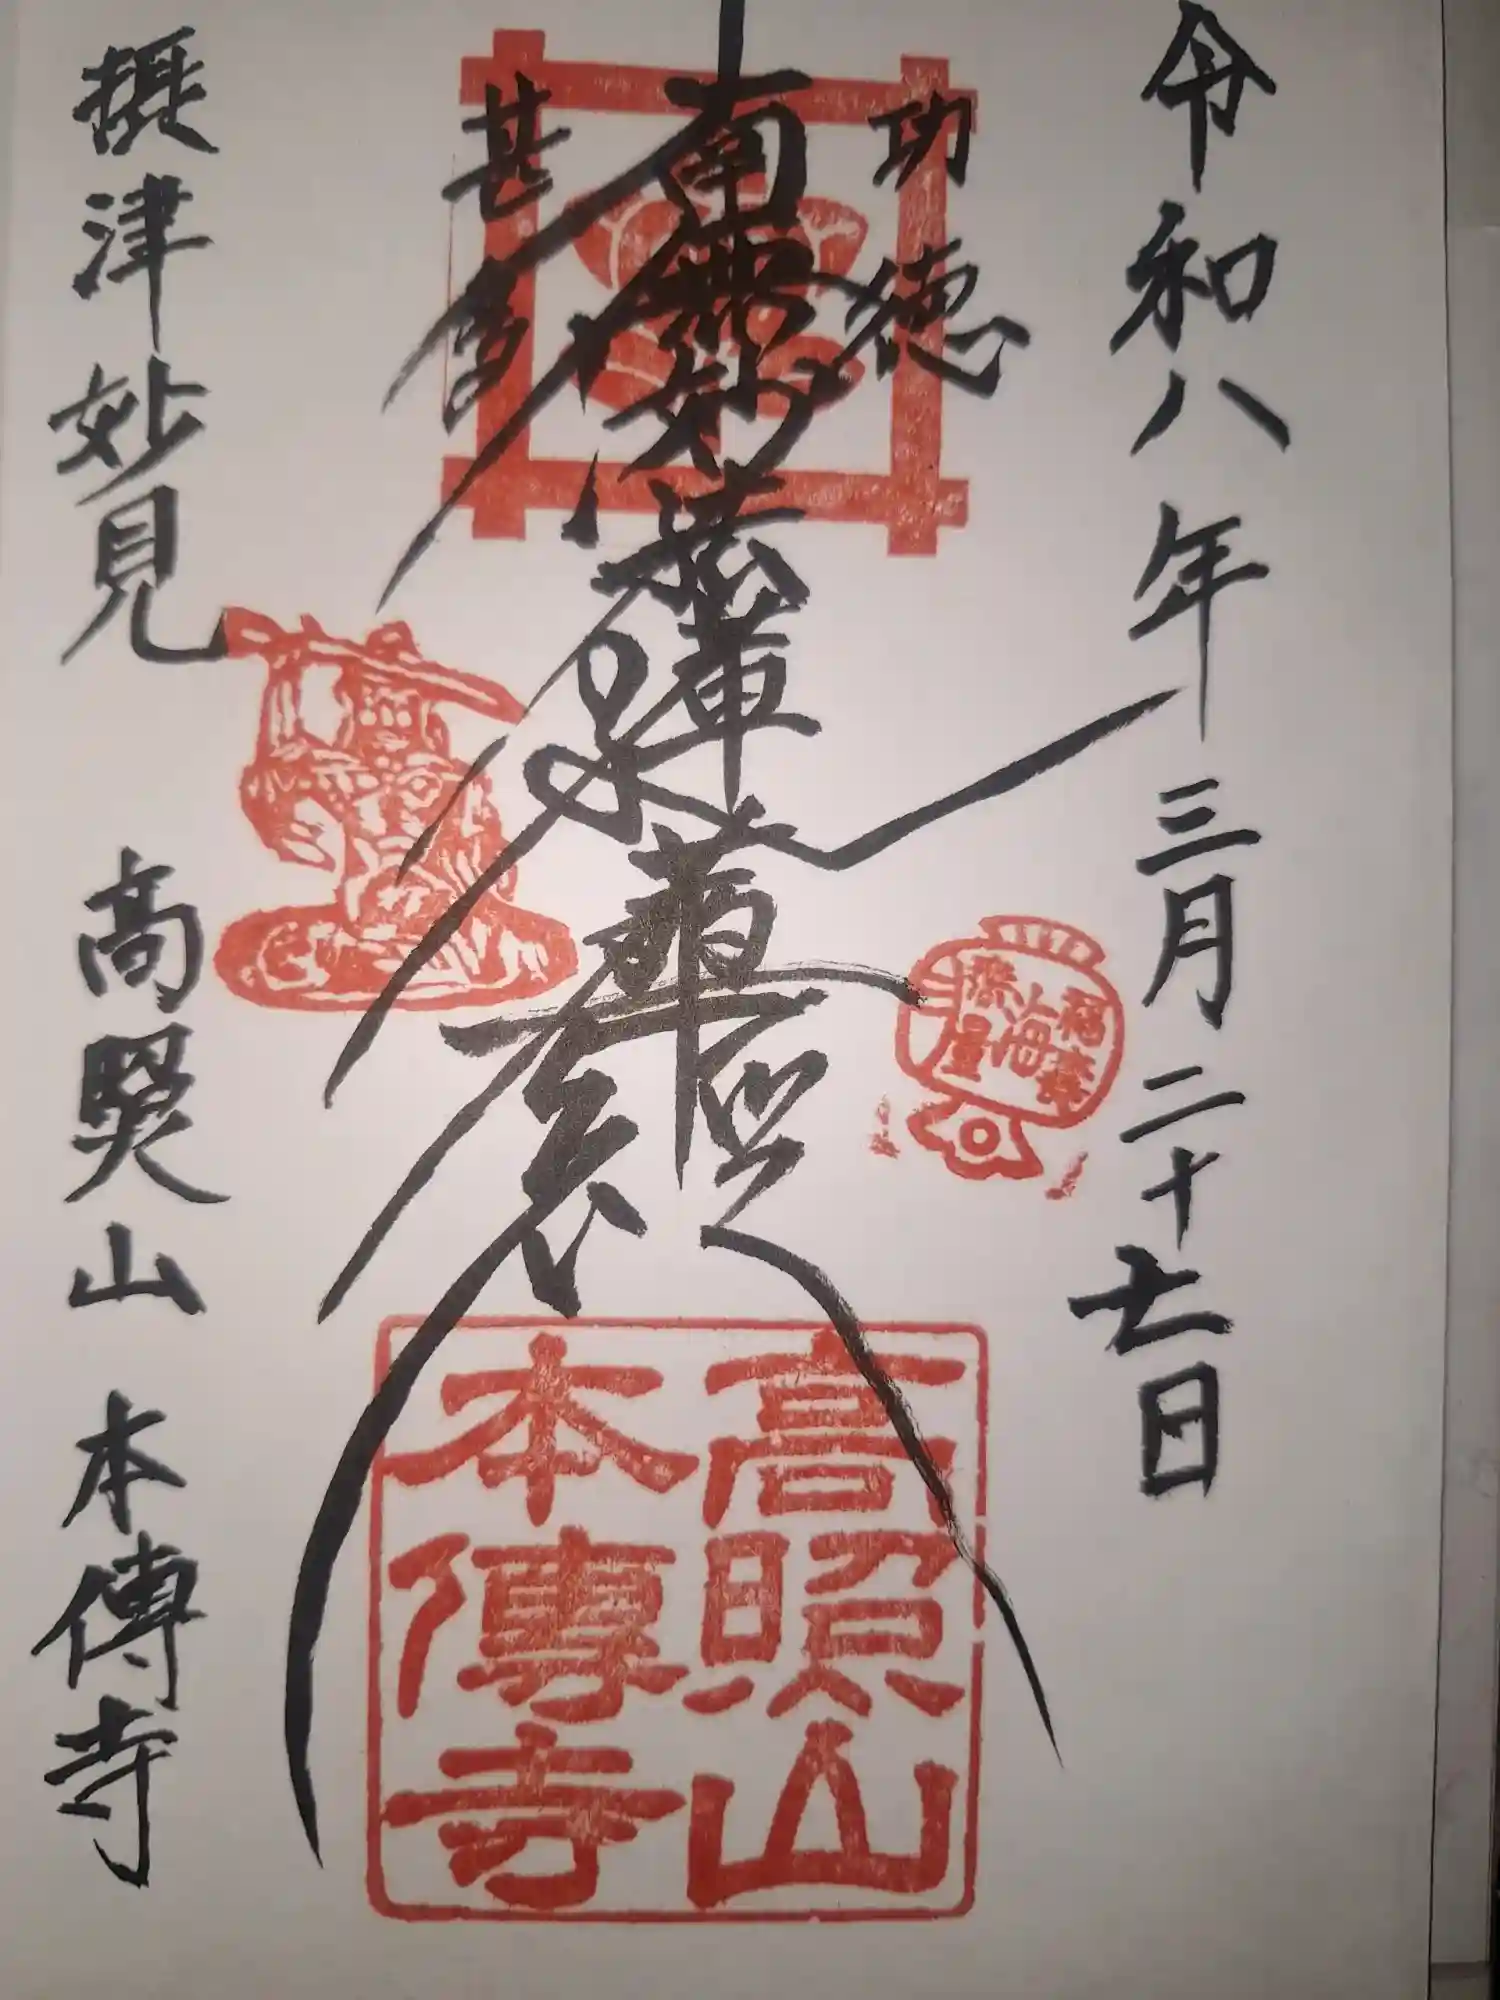 令和八年三月二十七日
功徳
南無妙法蓮華經
甚多
摂津妙見 高照山 本傳寺
福聚海無量
高照山
本傳寺